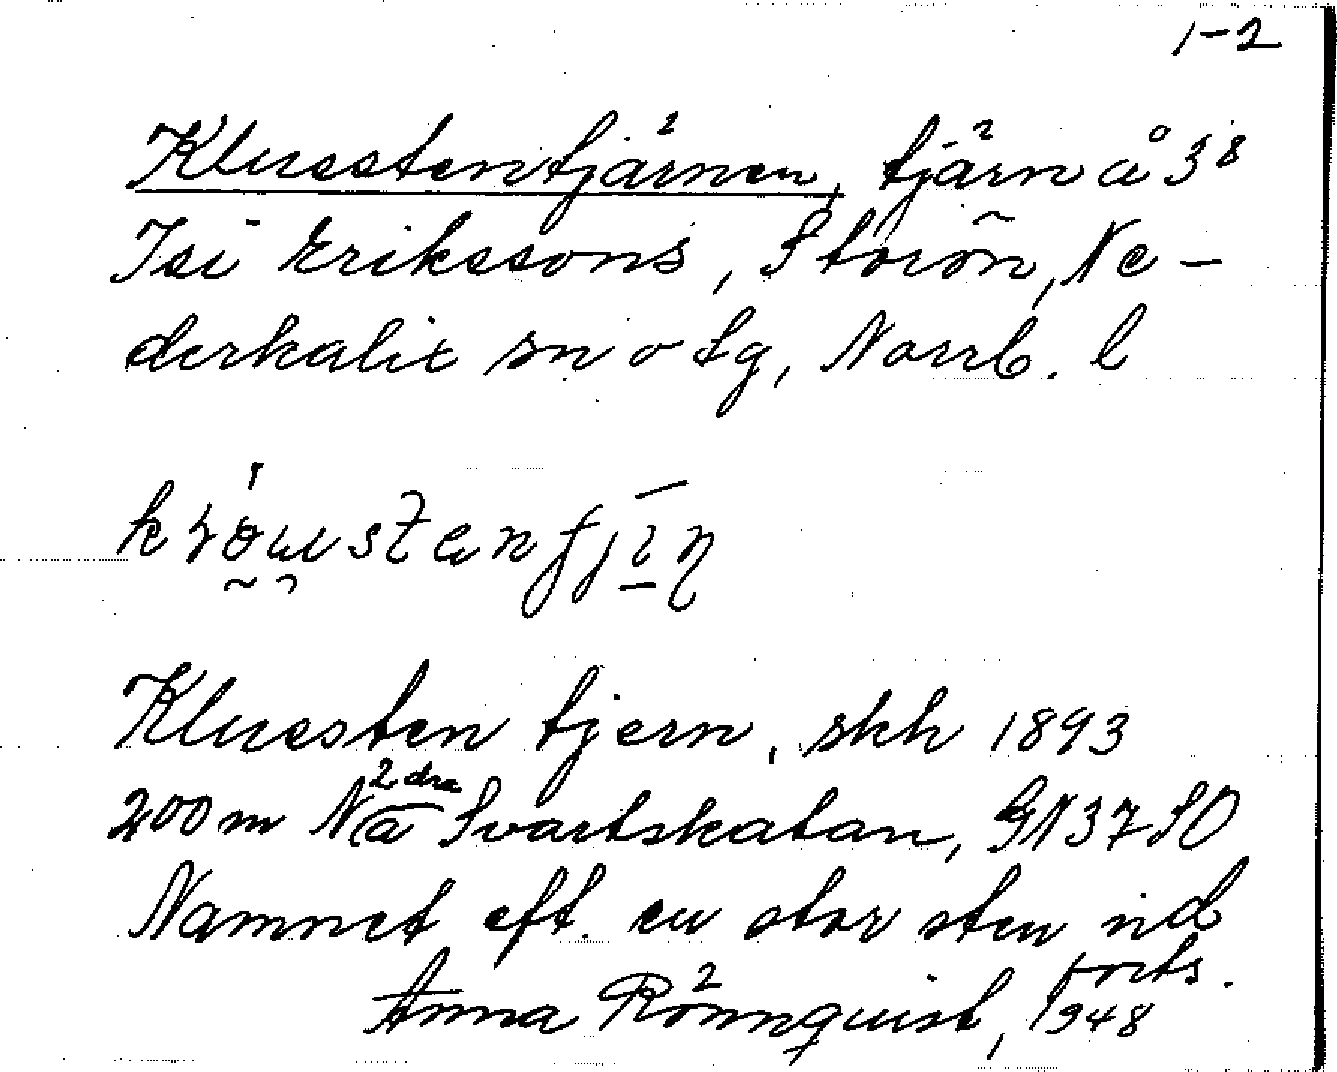 1-2
Klusstentjärnen, tjärn å 3⁸
Isi Erikssons, Storön, Ne-
derkalix sn o tg, Norrb. l
Klussten tjern, skh 1893
200 m N 2dra Svartskatan, GN 37 SO
Namnet eft. en stor sten vid
forts.
Anna Rönnquist, 1948